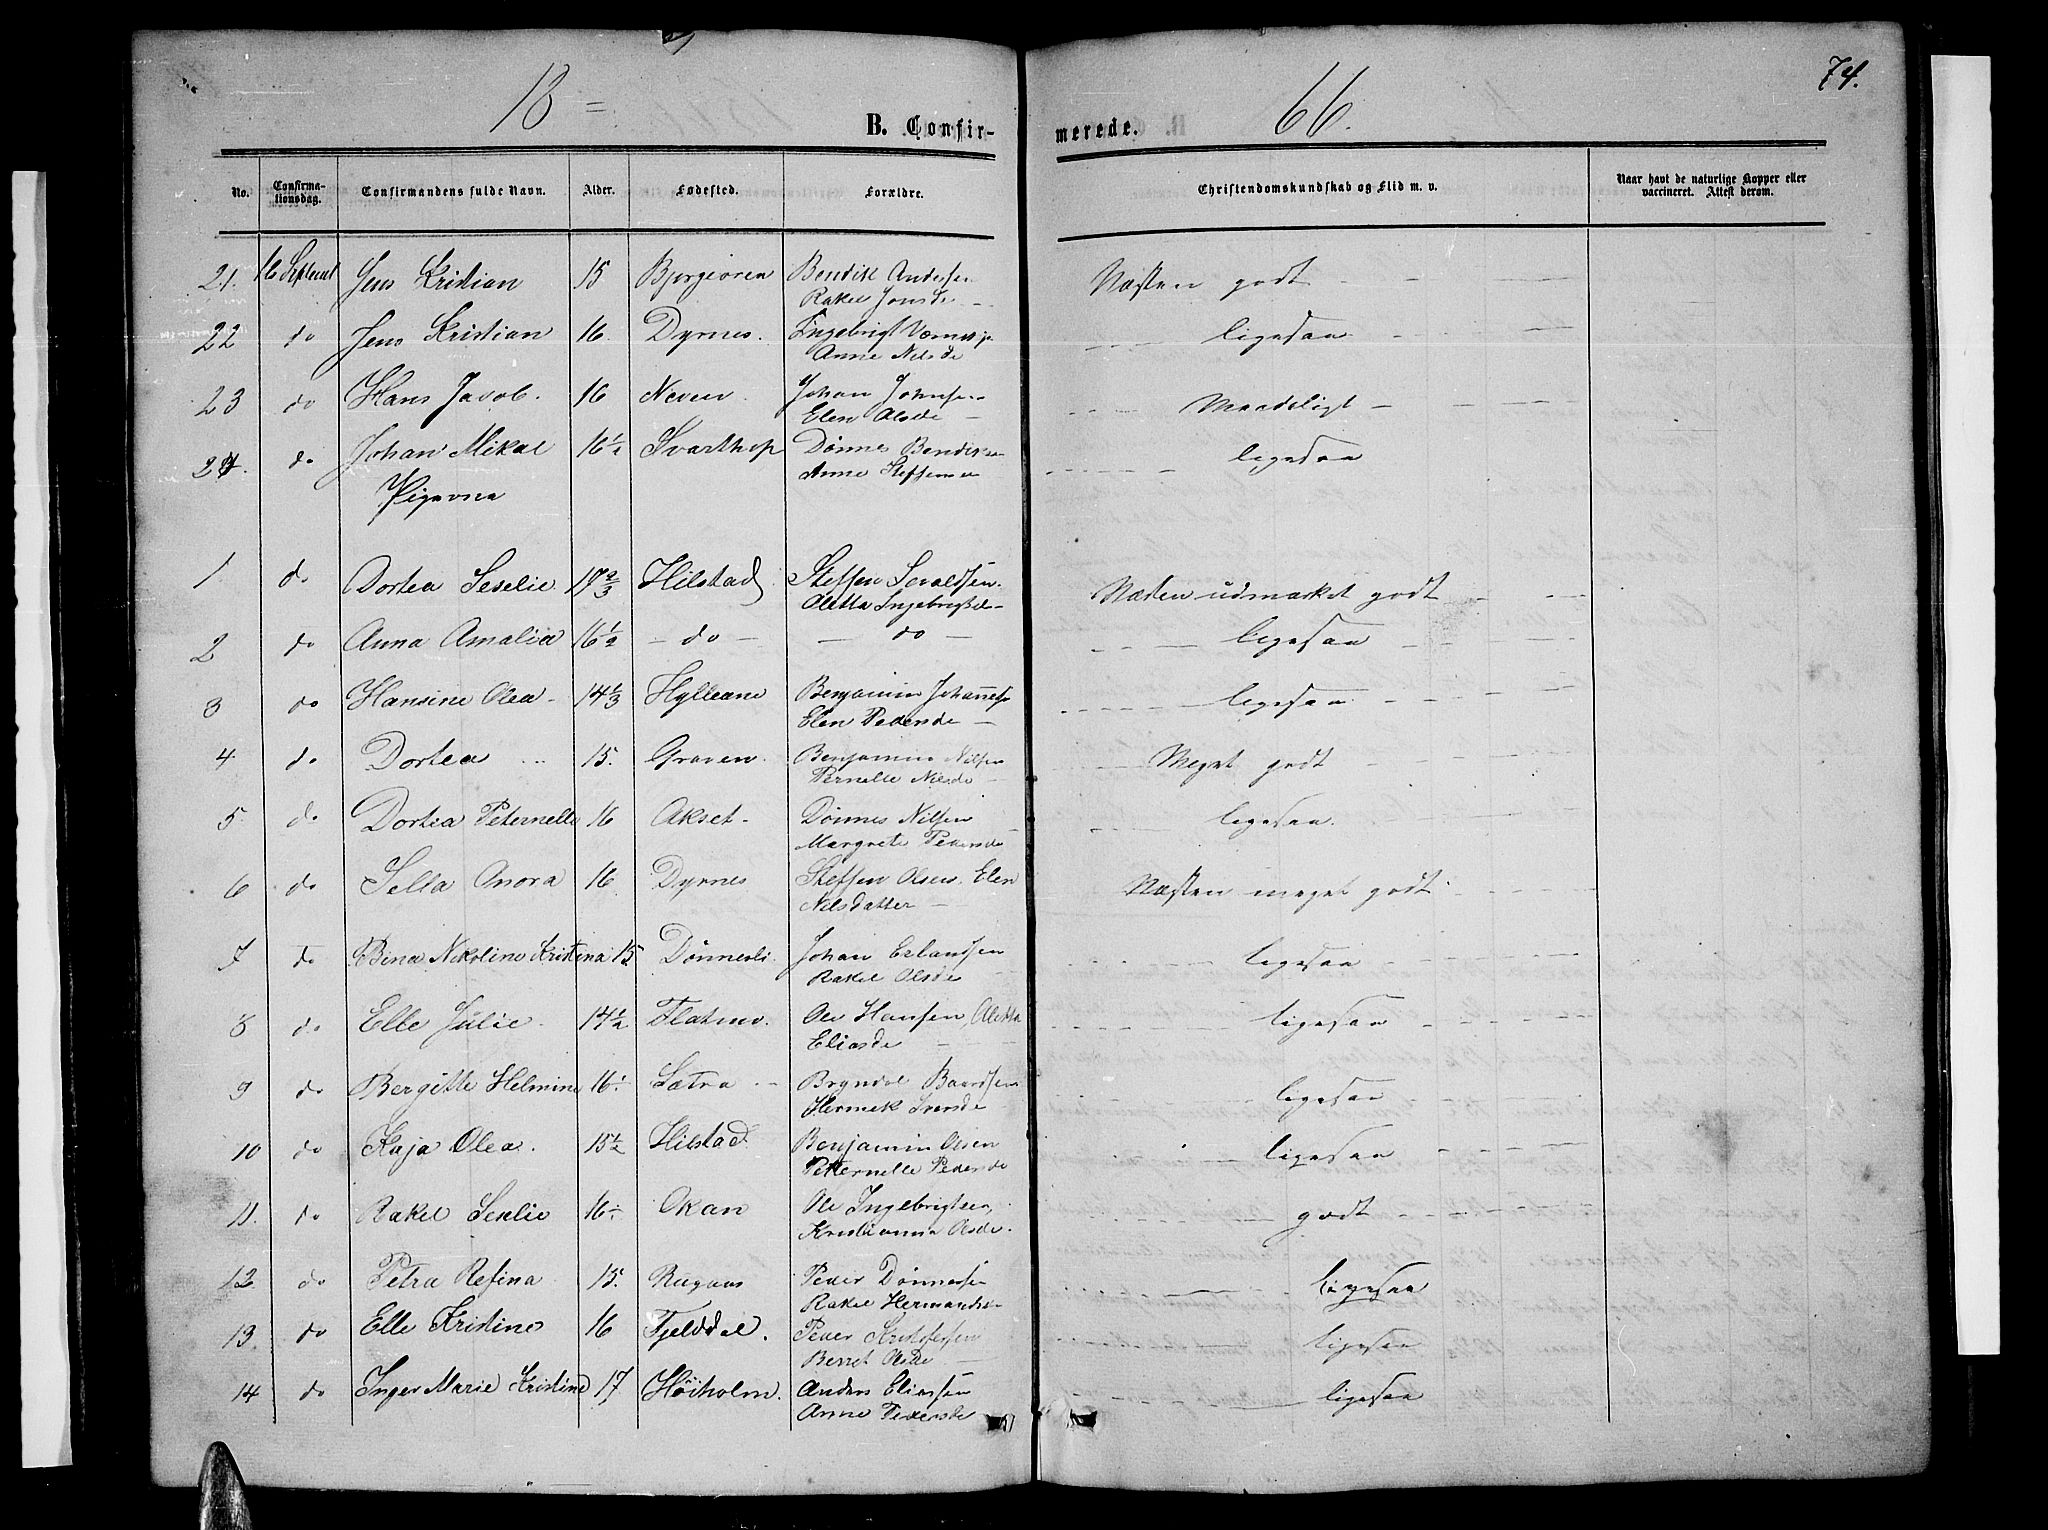 18 = 66.
74.
B. Confirmerede.
No. Confirmationsdag. Confirmandens fulde Navn. Alder. Fødested. Forældre. Christendomskundskab og Flid m. v. Naar havt de naturlige Kopper eller vaccineret. Attest derom.
21. 16 Septembr Jens Kristian 15 Bjørgeøren Bendik Andersen Næsten godt
Rakel Jonsdr
22 do Jens Kristian 16. Dyrnes. Ingebrigt ligesaa
Anne Nilsdr
23 do Hans Jacob. 16 Neven. Johan Johnsen Maadeligt
Elen Olsdr
24. do Johan Mikal 16 1/2 Svarthop Dønnes Bendiksen ligesaa
Anne Steffensdr
Pigerne
1 do Dortea Seselie 17 2/3 Hilstad Steffen Sevaldsen. Næsten udmærket godt
Aletta Ingebrigtsdr
2 do Anna Amalia 16 1/2 - do - - do - ligesaa
3 do Hansine Olea 14 1/3 Hylleane Benjamin Johannesen ligesaa
Elen Pedersdr
4 do Dortea 15. Graven. Benjamin Nilsen Meget godt
Pernelle Nilsdr
5 do Dortea Peternelle 16 Akset Dønnes Nilsen ligesaa.
Margrete Pedersdr
6 do Sella Anora 16 Dyrnes Steffen Olsen. Elen Næsten meget godt
Nilsdatter
7 do Bina Nikoline Kristina 15 Dønnesli Johan Erlandsen ligesaa
Rakel Olsdr
8 do Elle Julie 14 1/2 Flatmo. Ole Hansen, Aletta ligesaa
Eliasdr
9 do Bergitte Helmine 16 Sætra Bryndel Baardsen ligesaa
Hermek Svensdr
10 do Kaja Olea. 15 1/2 Hilstad Benjamin Olsen ligesaa
Peternelle Pedersdr
11. do Rakel Seslie 16 Okan Ole Ingebrigtsen, godt
Kristianna Olsdr.
12 do Petra Refina 15. Ragaas Peder Dønnessen ligesaa
Rakel Hermansdr
13. do Elle Kristine 16 Fjelddal. Peder Kristofersen ligesaa
Berret Olsdr
14 do Inger Marie Kristine 17 Høiholm. Anders Eliassen ligesaa
Anne Pedersdr